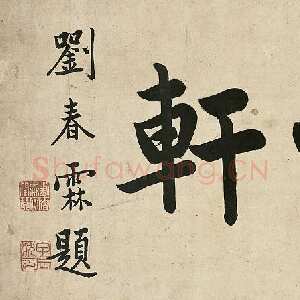 軒
劉春霖題
Shufawang.CN